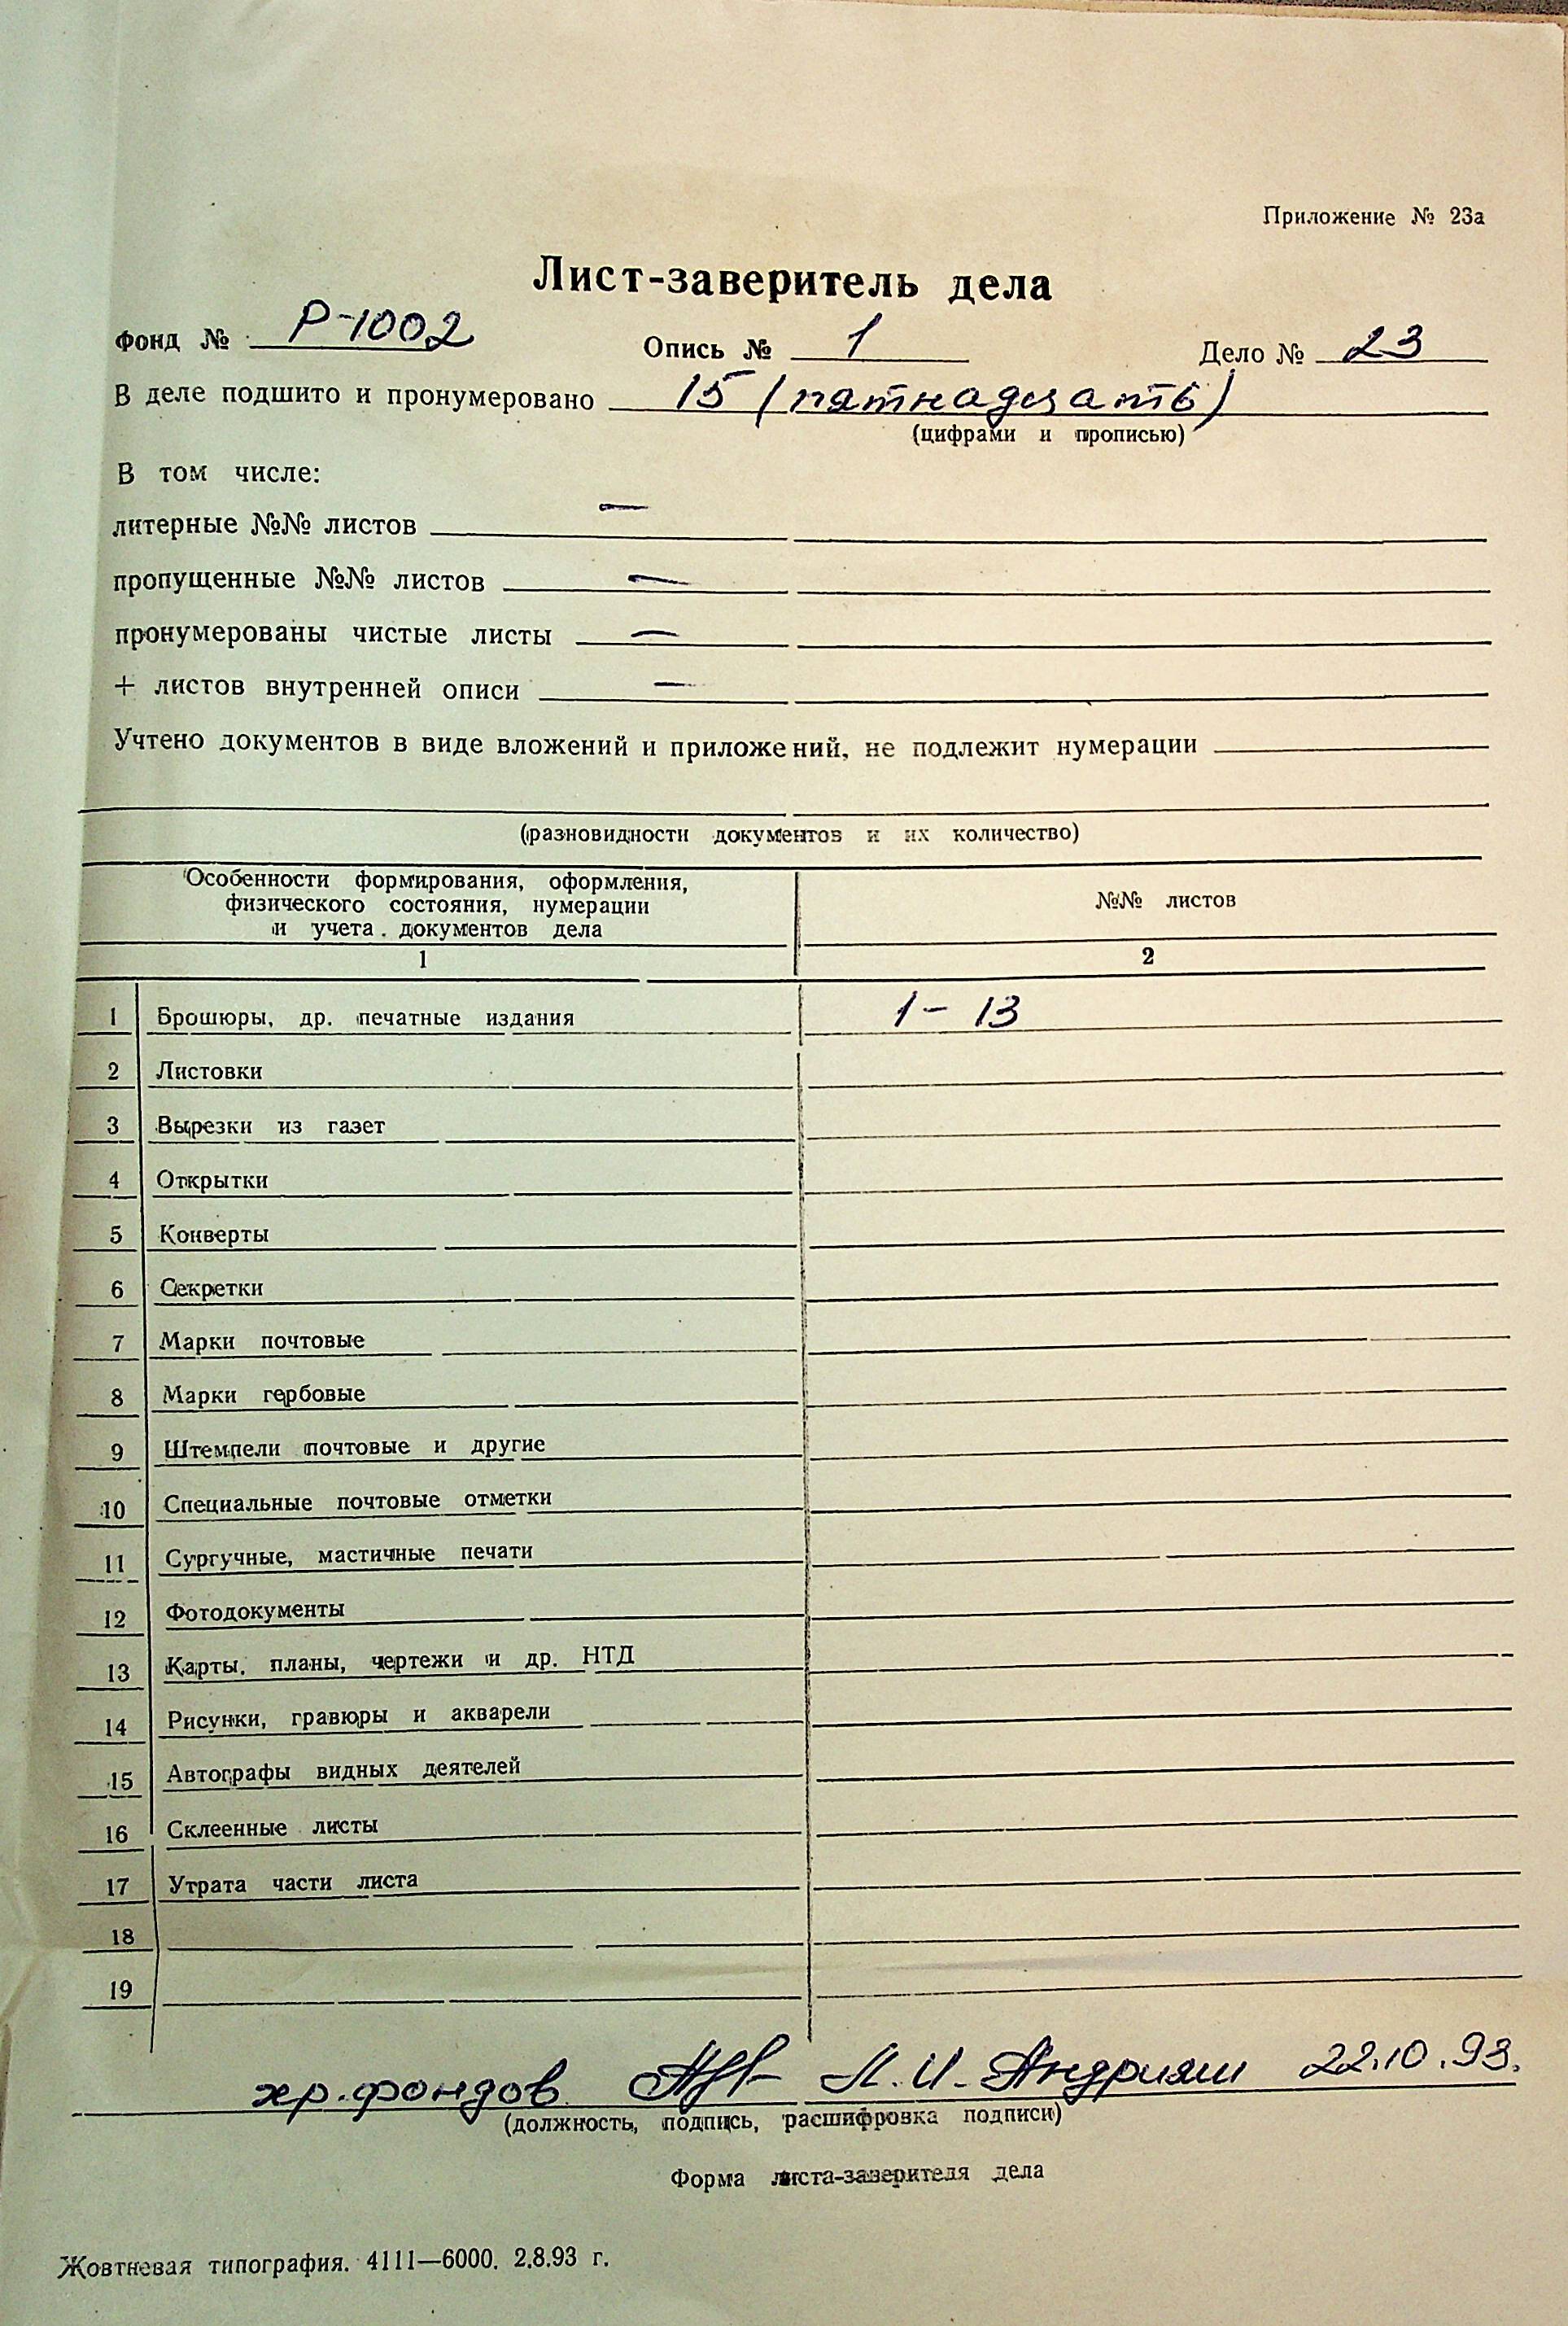 Приложение № 23а
Лист-заверитель дела
Фонд № Р-1002 Опись № 1 Дело № 23
В деле подшито и пронумеровано 15 (пятнадцать)
(цифрами и прописью)
В том числе:
литерные №№ листов —
пропущенные №№ листов —
пронумерованы чистые листы —
+ листов внутренней описи —
Учтено документов в виде вложений и приложений, не подлежит нумерации
(разновидности документов и их количество)
Особенности формирования, оформления,
физического состояния, нумерации
и учета документов дела
№№ листов
1 2
1 Брошюры, др. печатные издания 1 - 13
2 Листовки
3 Вырезки из газет
4 Открытки
5 Конверты
6 Секретки
7 Марки почтовые
8 Марки гербовые
9 Штемпели почтовые и другие
10 Специальные почтовые отметки
11 Сургучные, мастичные печати
12 Фотодокументы
13 Карты, планы, чертежи и др. НТД
14 Рисунки, гравюры и акварели
15 Автографы видных деятелей
16 Склеенные листы
17 Утрата части листа
18
19
хр. фондов Л. И. Андрияш 22.10.93.
(должность, подпись, расшифровка подписи)
Форма листа-заверителя дела
Жовтневая типография. 4111—6000. 2.8.93 г.